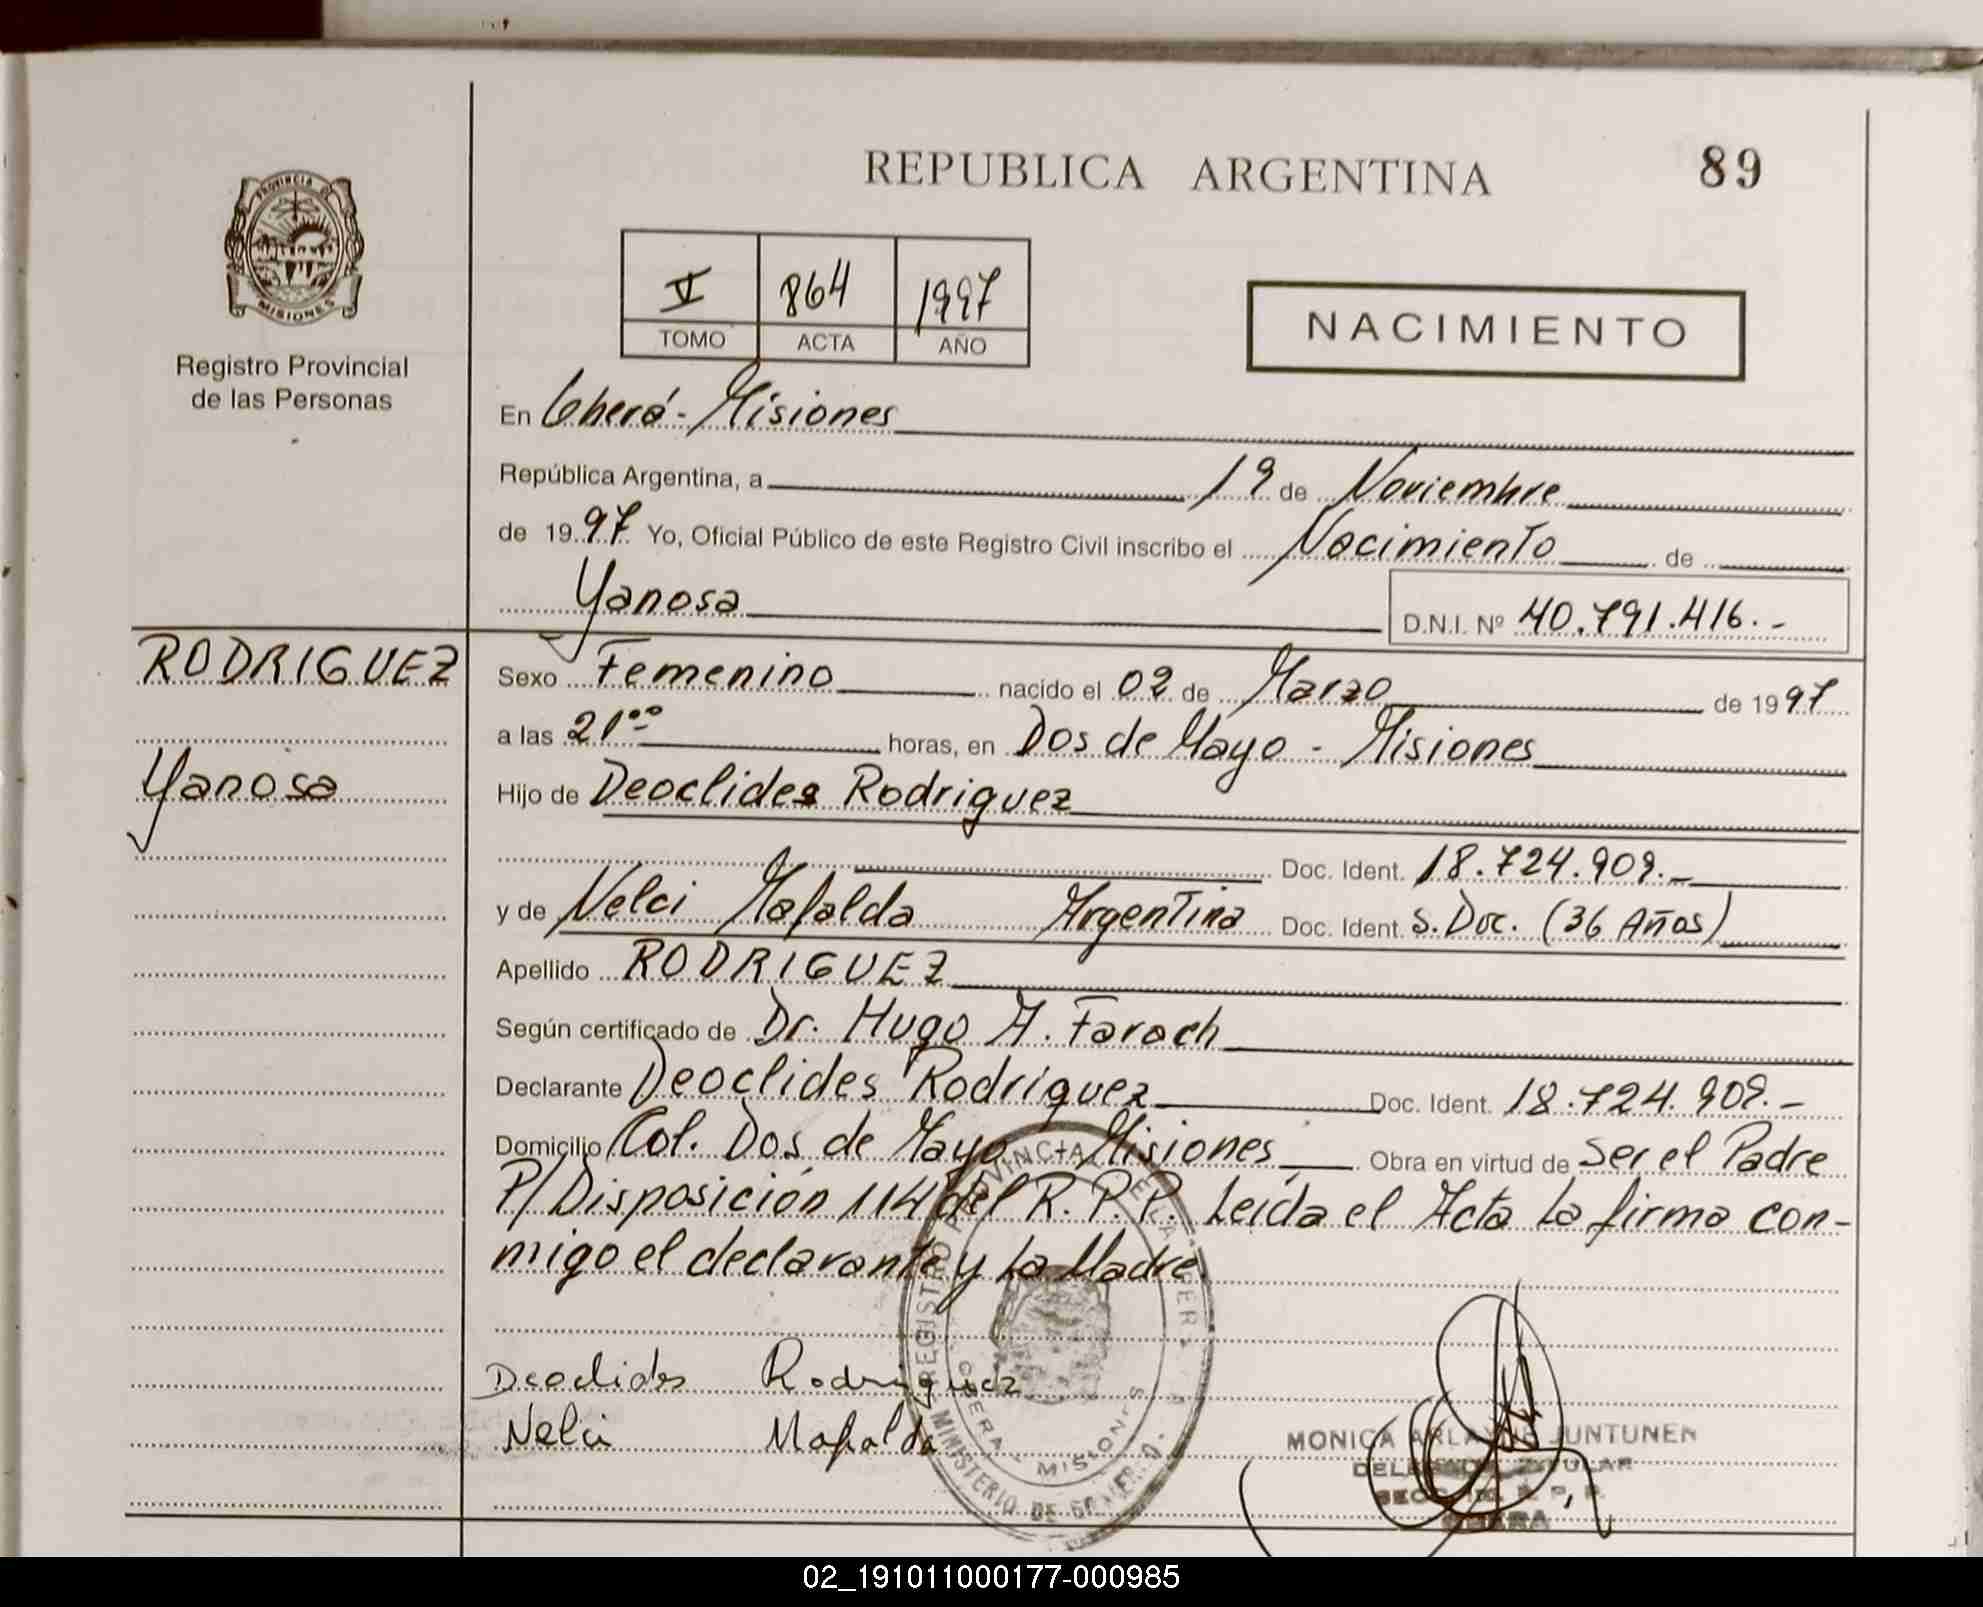 REPUBLICA ARGENTINA
89
PROVINCIA DE
MISIONES
Registro Provincial
de las Personas
V 864 1997
TOMO ACTA AÑO
NACIMIENTO
En Oberá - Misiones
República Argentina, a 19 de Noviembre
de 1997 Yo, Oficial Público de este Registro Civil inscribo el Nacimiento de
Yanosa
D.N.I. Nº 40.791.416.-
RODRIGUEZ
Yanosa
Sexo Femenino nacido el 02 de Marzo de 1997
a las 21⁰⁰ horas, en Dos de Mayo - Misiones
Hijo de Deoclides Rodriguez
Doc. Ident. 18.724.909.-
y de Nelci Mafalda Argentina Doc. Ident. S. Doc. (36 Años)
Apellido RODRIGUEZ
Según certificado de Dr. Hugo A. Farach
Declarante Deoclides Rodriguez Doc. Ident. 18.724.909.-
Domicilio Col. Dos de Mayo Misiones Obra en virtud de Ser el Padre
P/ Disposición 114 del R.P.P. Leída el Acta La firma con-
migo el declarante y La Madre
Deoclides Rodriguez
Nelci Mafalda
REGISTRO PROVINCIAL DE LAS PER
MINISTERIO DE GOBIERNO
OBERA MISIONES
MONICA ARLAYNE JUNTUNEN
DELEGADA TITULAR
OBERA
02_191011000177-000985